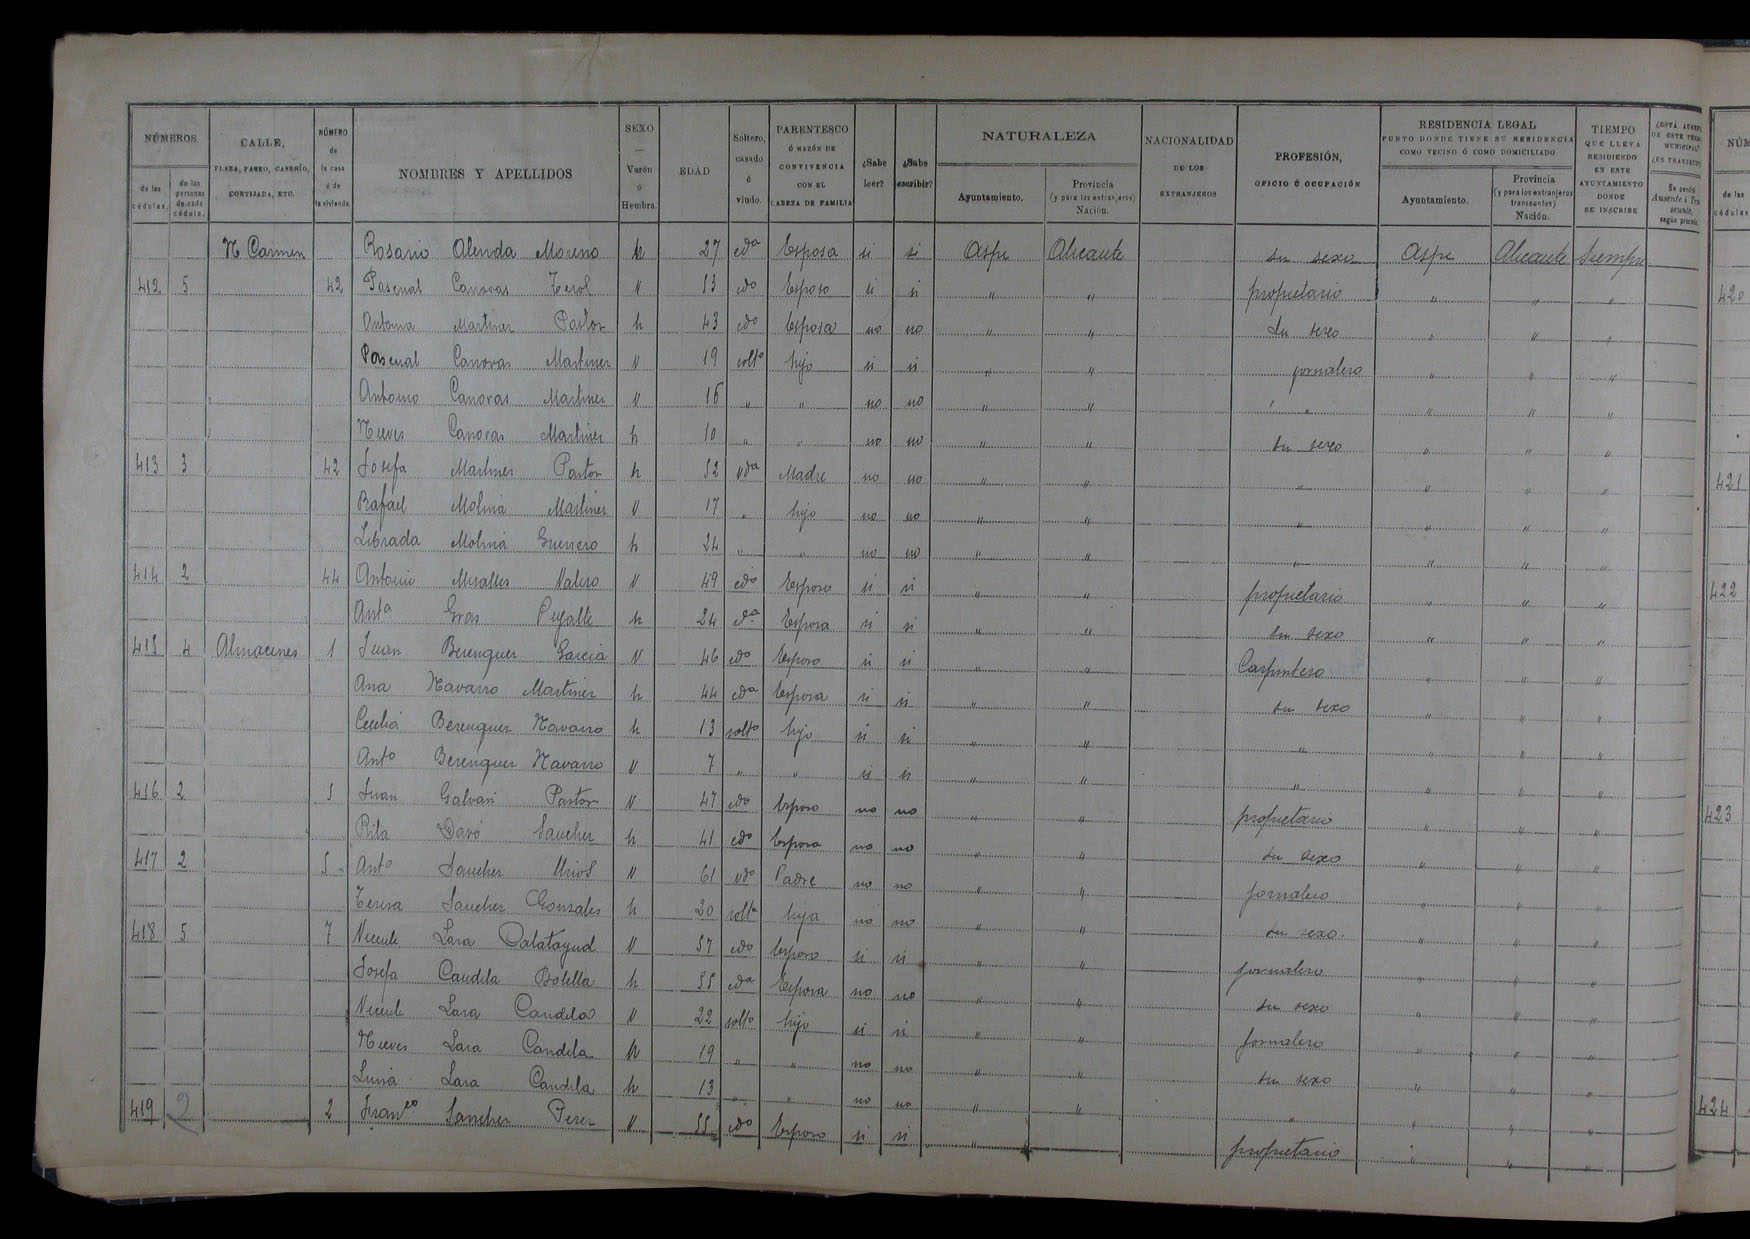 NÚMEROS
de las cédulas.
de las personas de cada cédula.
CALLE, PLAZA, PASEO, CASERÍO, CORTIJADA, ETC.
NÚMERO de la casa ó de la vivienda.
NOMBRES Y APELLIDOS
SEXO — Varón ó Hembra.
EDAD
Soltero, casado ó viudo.
PARENTESCO Ó RAZÓN DE CONVIVENCIA CON EL CABEZA DE FAMILIA
¿Sabe leer?
¿Sabe escribir?
NATURALEZA
Ayuntamiento.
Provincia (y para los extranjeros) Nación.
NACIONALIDAD DE LOS EXTRANJEROS
PROFESIÓN, OFICIO Ú OCUPACIÓN
RESIDENCIA LEGAL
PUNTO DONDE TIENE SU RESIDENCIA COMO VECINO Ó COMO DOMICILIADO
Ayuntamiento.
Provincia (y para los extranjeros transeuntes) Nación.
TIEMPO QUE LLEVA RESIDIENDO EN ESTE AYUNTAMIENTO DONDE SE INSCRIBE
N Carmen Rosario Alenda Moreno h 27 cda Esposa si si Aspe Alicante su sexo Aspe Alicante Siempre
412 5 42 Pascual Canovas Terol V 13 cdo Esposo si si " " propietario " " "
Antonia Martinez Pastor h 43 cdo Esposa no no " " su sexo " " "
Pascual Canovas Martinez V 19 solto hijo si si " " jornalero " " "
Antonio Canovas Martinez V 16 " " no no " " " " " "
Nieves Canovas Martinez h 10 " " no no " " su sexo " " "
413 3 42 Josefa Martinez Pastor h 52 vda Madre no no " " " " " "
Rafael Molina Martinez V 17 " hijo no no " " " " " "
Librada Molina Guerrero h 24 " " no no " " " " " "
414 2 44 Antonio Miralles Valero V 49 cdo Esposo si si " " propietario " " "
Anta Gras Pujalte h 24 cda Esposa si si " " su sexo " " "
415 4 Almacenes 1 Juan Berenguer Garcia V 46 cdo Esposo si si " " Carpintero " " "
Ana Navarro Martinez h 44 cda Esposa si si " " su sexo " " "
Cecilia Berenguer Navarro h 13 solto hijo si si " " " " " "
Anto Berenguer Navarro V 7 " " si si " " " " " "
416 2 5 Juan Galvañ Pastor V 47 cdo Esposo no no " " propietario " " "
Rita Davó Sanchez h 41 cdo Esposa no no " " su sexo " " "
417 2 5 Anto Sanchez Urios V 61 vdo Padre no no " " jornalero " " "
Teresa Sanchez Gonzales h 20 solta hija no no " " su sexo " " "
418 5 7 Vicente Lara Calatayud V 57 cdo Esposo si si " " jornalero " " "
Josefa Candela Botella h 55 cda Esposa no no " " su sexo " " "
Vicente Lara Candela V 22 solto hijo si si " " jornalero " " "
Nieves Lara Candela h 19 " " no no " " su sexo " " "
Luisa Lara Candela h 13 " " no no " " " " " "
419 2 2 Franco Sanchez Perez V 55 cdo Esposo si si " " propietario " " "
NÚM
de las cédulas
420
421
422
423
424